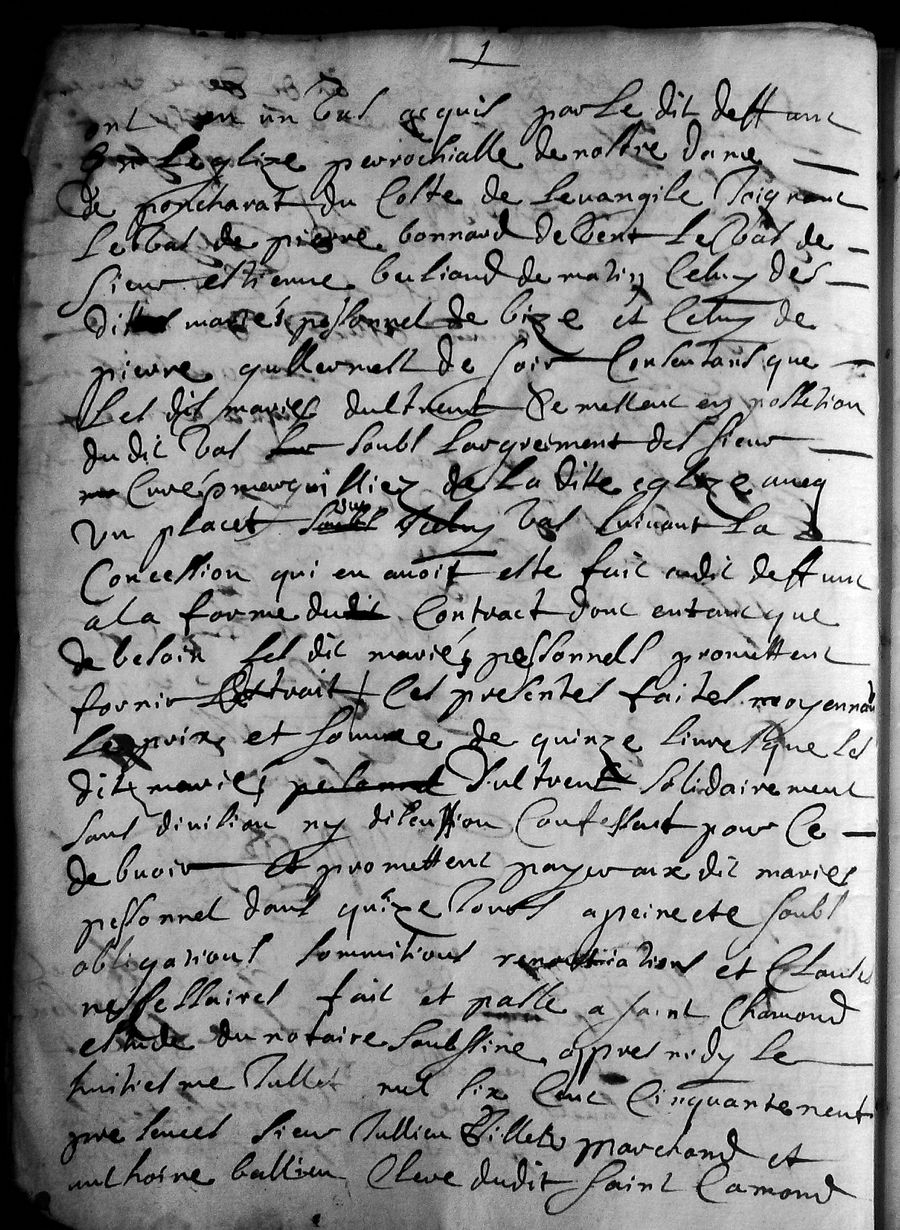 1
ont en un Vas acquis par Le dit deffunt
Leglize perrochialle de nostre dame
de poncharat du Coste de Levangile Joignant
Le Vas de pierre bonnard de Vent Le Vas de
Sieur estienne berliand de matin Celuy des
dittes mariés pessonnel de bize et Celuy de
pierre guillermest de soir Consentant que
Les dit mariés dultreut Se mettent en possetion
du dit Vas soubs Lagreément des sieur
Curé marguilliez de La ditte eglize aueq
Vn placet sur Iceluy Vas suiuant La
Concession qui en auoit este fait audit deffunt
a la forme dudit Contract dont entant que
de besoin Les dit mariés pessonnels promettent
fornir Lextrait Ces presentes faites moyennant
Le prix et somme de quinze liures que les
dit mariés dultreut solidairement
sans diuision ny discussion Confessent pour Ce
debuoir Et promettent payer aux dit mariés
pessonnel dans quinze Jours a peine etc soubs
obligations sommitions renontiations et Clauses
nessessaires fait et passe a saint Chamond
estude du notaire soubssine appres midy Le
huitiesme Jullet mil six Cent Cinquanteneuf
presences sieur Jullien Billet marchand et
anthoine ballien Clerc dudit saint Camond